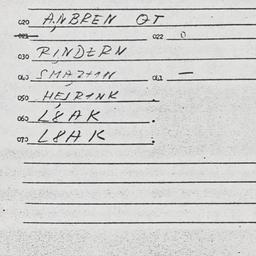 020 ANBREN QT
021 022 0
030 RINDERN
040 041 —
050
060 L8AK .
070 L8AK .